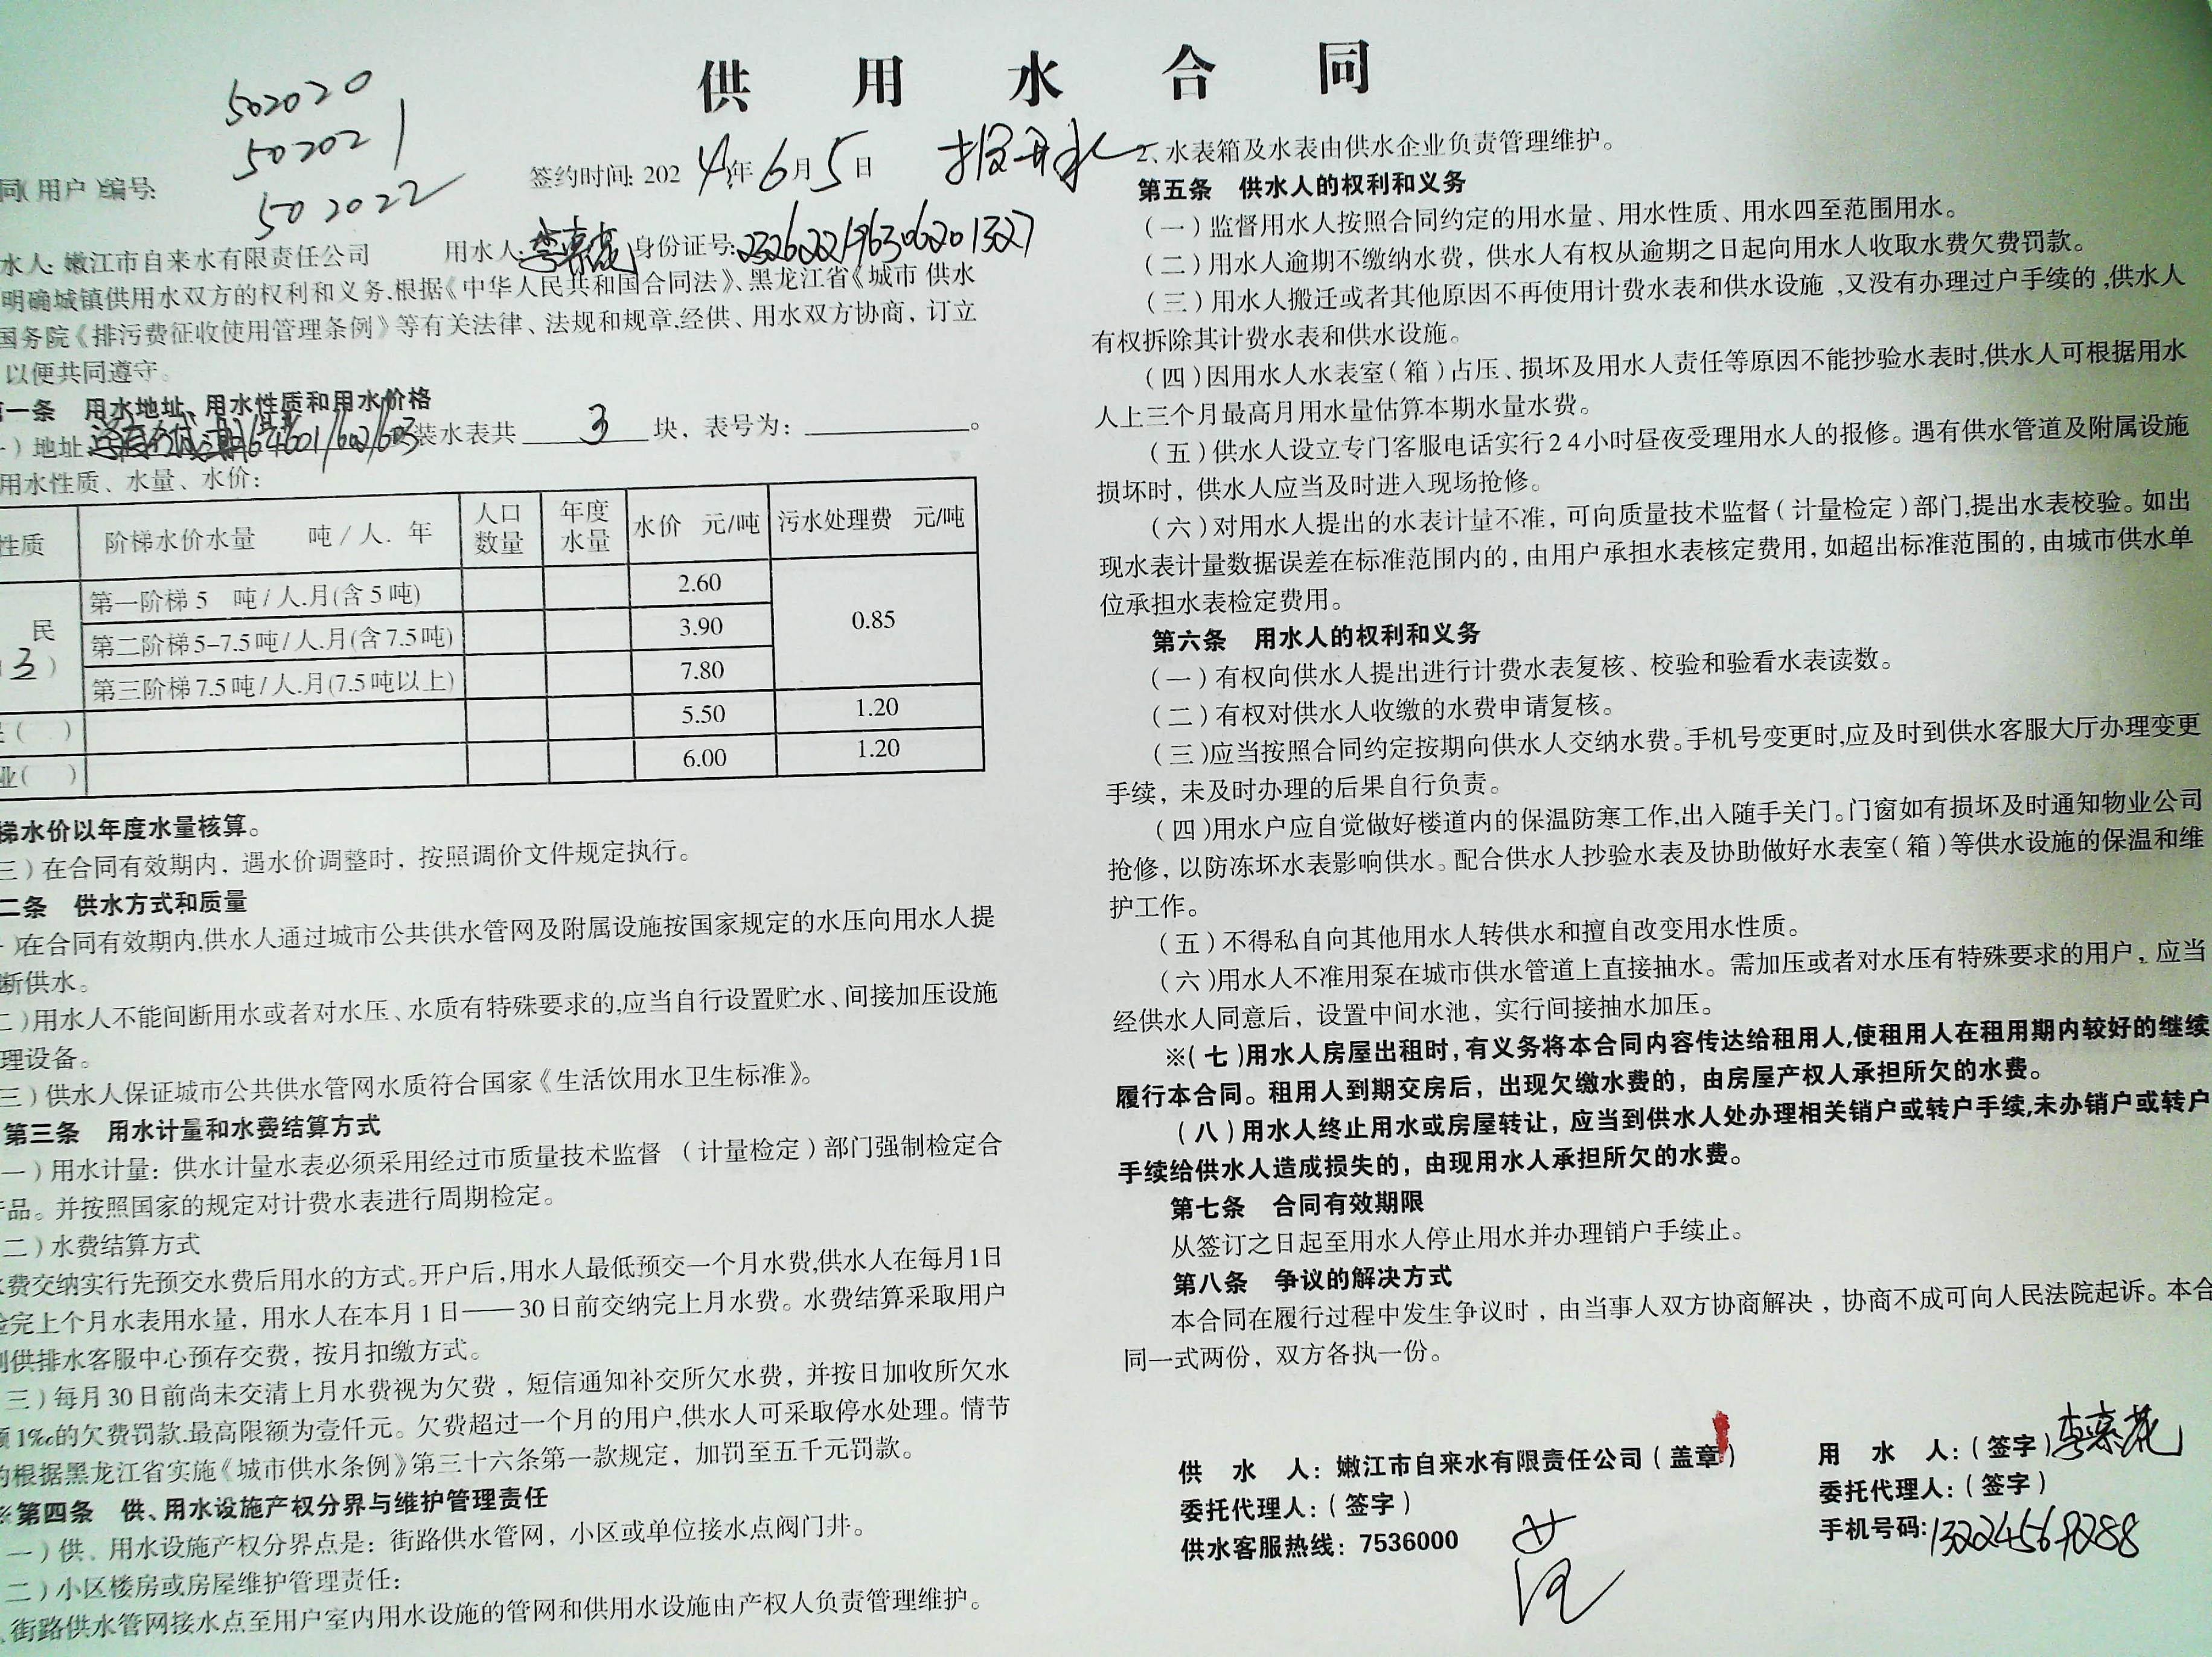 供用水合同
502020
502021
502022
同(用户)编号:
签约时间: 2024年6月5日
水人: 嫩江市自来水有限责任公司 用水人: 身份证号:232622196306201327
明确城镇供用水双方的权利和义务,根据《中华人民共和国合同法》、黑龙江省《城市供水
国务院《排污费征收使用管理条例》等有关法律、法规和规章,经供、用水双方协商，订立
以便共同遵守。
一条 用水地址、用水性质和用水价格
)地址 装水表共 3 块，表号为：
用水性质、水量、水价：
性质 阶梯水价水量 吨/人.年 人口数量 年度水量 水价 元/吨 污水处理费 元/吨
民 第一阶梯5 吨/人.月(含5吨) 2.60 0.85
3) 第二阶梯5-7.5吨/人.月(含7.5吨) 3.90
第三阶梯7.5吨/人.月(7.5吨以上) 7.80
( ) 5.50 1.20
业( ) 6.00 1.20
梯水价以年度水量核算。
三)在合同有效期内，遇水价调整时，按照调价文件规定执行。
二条 供水方式和质量
)在合同有效期内,供水人通过城市公共供水管网及附属设施按国家规定的水压向用水人提
断供水。
二)用水人不能间断用水或者对水压、水质有特殊要求的,应当自行设置贮水、间接加压设施
理设备。
三)供水人保证城市公共供水管网水质符合国家《生活饮用水卫生标准》。
第三条 用水计量和水费结算方式
一)用水计量：供水计量水表必须采用经过市质量技术监督(计量检定)部门强制检定合
品。并按照国家的规定对计费水表进行周期检定。
二)水费结算方式
费交纳实行先预交水费后用水的方式。开户后,用水人最低预交一个月水费,供水人在每月1日
完上个月水表用水量，用水人在本月1日——30日前交纳完上月水费。水费结算采取用户
到供排水客服中心预存交费，按月扣缴方式。
三)每月30日前尚未交清上月水费视为欠费，短信通知补交所欠水费，并按日加收所欠水
额1‰的欠费罚款.最高限额为壹仟元。欠费超过一个月的用户,供水人可采取停水处理。情节
的根据黑龙江省实施《城市供水条例》第三十六条第一款规定，加罚至五千元罚款。
※第四条 供、用水设施产权分界与维护管理责任
一)供、用水设施产权分界点是：街路供水管网，小区或单位接水点阀门井。
二)小区楼房或房屋维护管理责任：
、街路供水管网接水点至用户室内用水设施的管网和供用水设施由产权人负责管理维护。
2、水表箱及水表由供水企业负责管理维护。
第五条 供水人的权利和义务
(一)监督用水人按照合同约定的用水量、用水性质、用水四至范围用水。
(二)用水人逾期不缴纳水费，供水人有权从逾期之日起向用水人收取水费欠费罚款。
(三)用水人搬迁或者其他原因不再使用计费水表和供水设施,又没有办理过户手续的,供水人
有权拆除其计费水表和供水设施。
(四)因用水人水表室(箱)占压、损坏及用水人责任等原因不能抄验水表时,供水人可根据用水
人上三个月最高月用水量估算本期水量水费。
(五)供水人设立专门客服电话实行24小时昼夜受理用水人的报修。遇有供水管道及附属设施
损坏时，供水人应当及时进入现场抢修。
(六)对用水人提出的水表计量不准，可向质量技术监督(计量检定)部门,提出水表校验。如出
现水表计量数据误差在标准范围内的，由用户承担水表核定费用，如超出标准范围的，由城市供水单
位承担水表检定费用。
第六条 用水人的权利和义务
(一)有权向供水人提出进行计费水表复核、校验和验看水表读数。
(二)有权对供水人收缴的水费申请复核。
(三)应当按照合同约定按期向供水人交纳水费。手机号变更时,应及时到供水客服大厅办理变更
手续，未及时办理的后果自行负责。
(四)用水户应自觉做好楼道内的保温防寒工作,出入随手关门。门窗如有损坏及时通知物业公司
抢修，以防冻坏水表影响供水。配合供水人抄验水表及协助做好水表室(箱)等供水设施的保温和维
护工作。
(五)不得私自向其他用水人转供水和擅自改变用水性质。
(六)用水人不准用泵在城市供水管道上直接抽水。需加压或者对水压有特殊要求的用户，应当
经供水人同意后，设置中间水池，实行间接抽水加压。
※(七)用水人房屋出租时,有义务将本合同内容传达给租用人,使租用人在租用期内较好的继续
履行本合同。租用人到期交房后，出现欠缴水费的，由房屋产权人承担所欠的水费。
(八)用水人终止用水或房屋转让，应当到供水人处办理相关销户或转户手续,未办销户或转户
手续给供水人造成损失的，由现用水人承担所欠的水费。
第七条 合同有效期限
从签订之日起至用水人停止用水并办理销户手续止。
第八条 争议的解决方式
本合同在履行过程中发生争议时，由当事人双方协商解决，协商不成可向人民法院起诉。本合
同一式两份，双方各执一份。
供水人：嫩江市自来水有限责任公司(盖章)
委托代理人：(签字)
供水客服热线：7536000
用水人：(签字)
委托代理人：(签字)
手机号码: